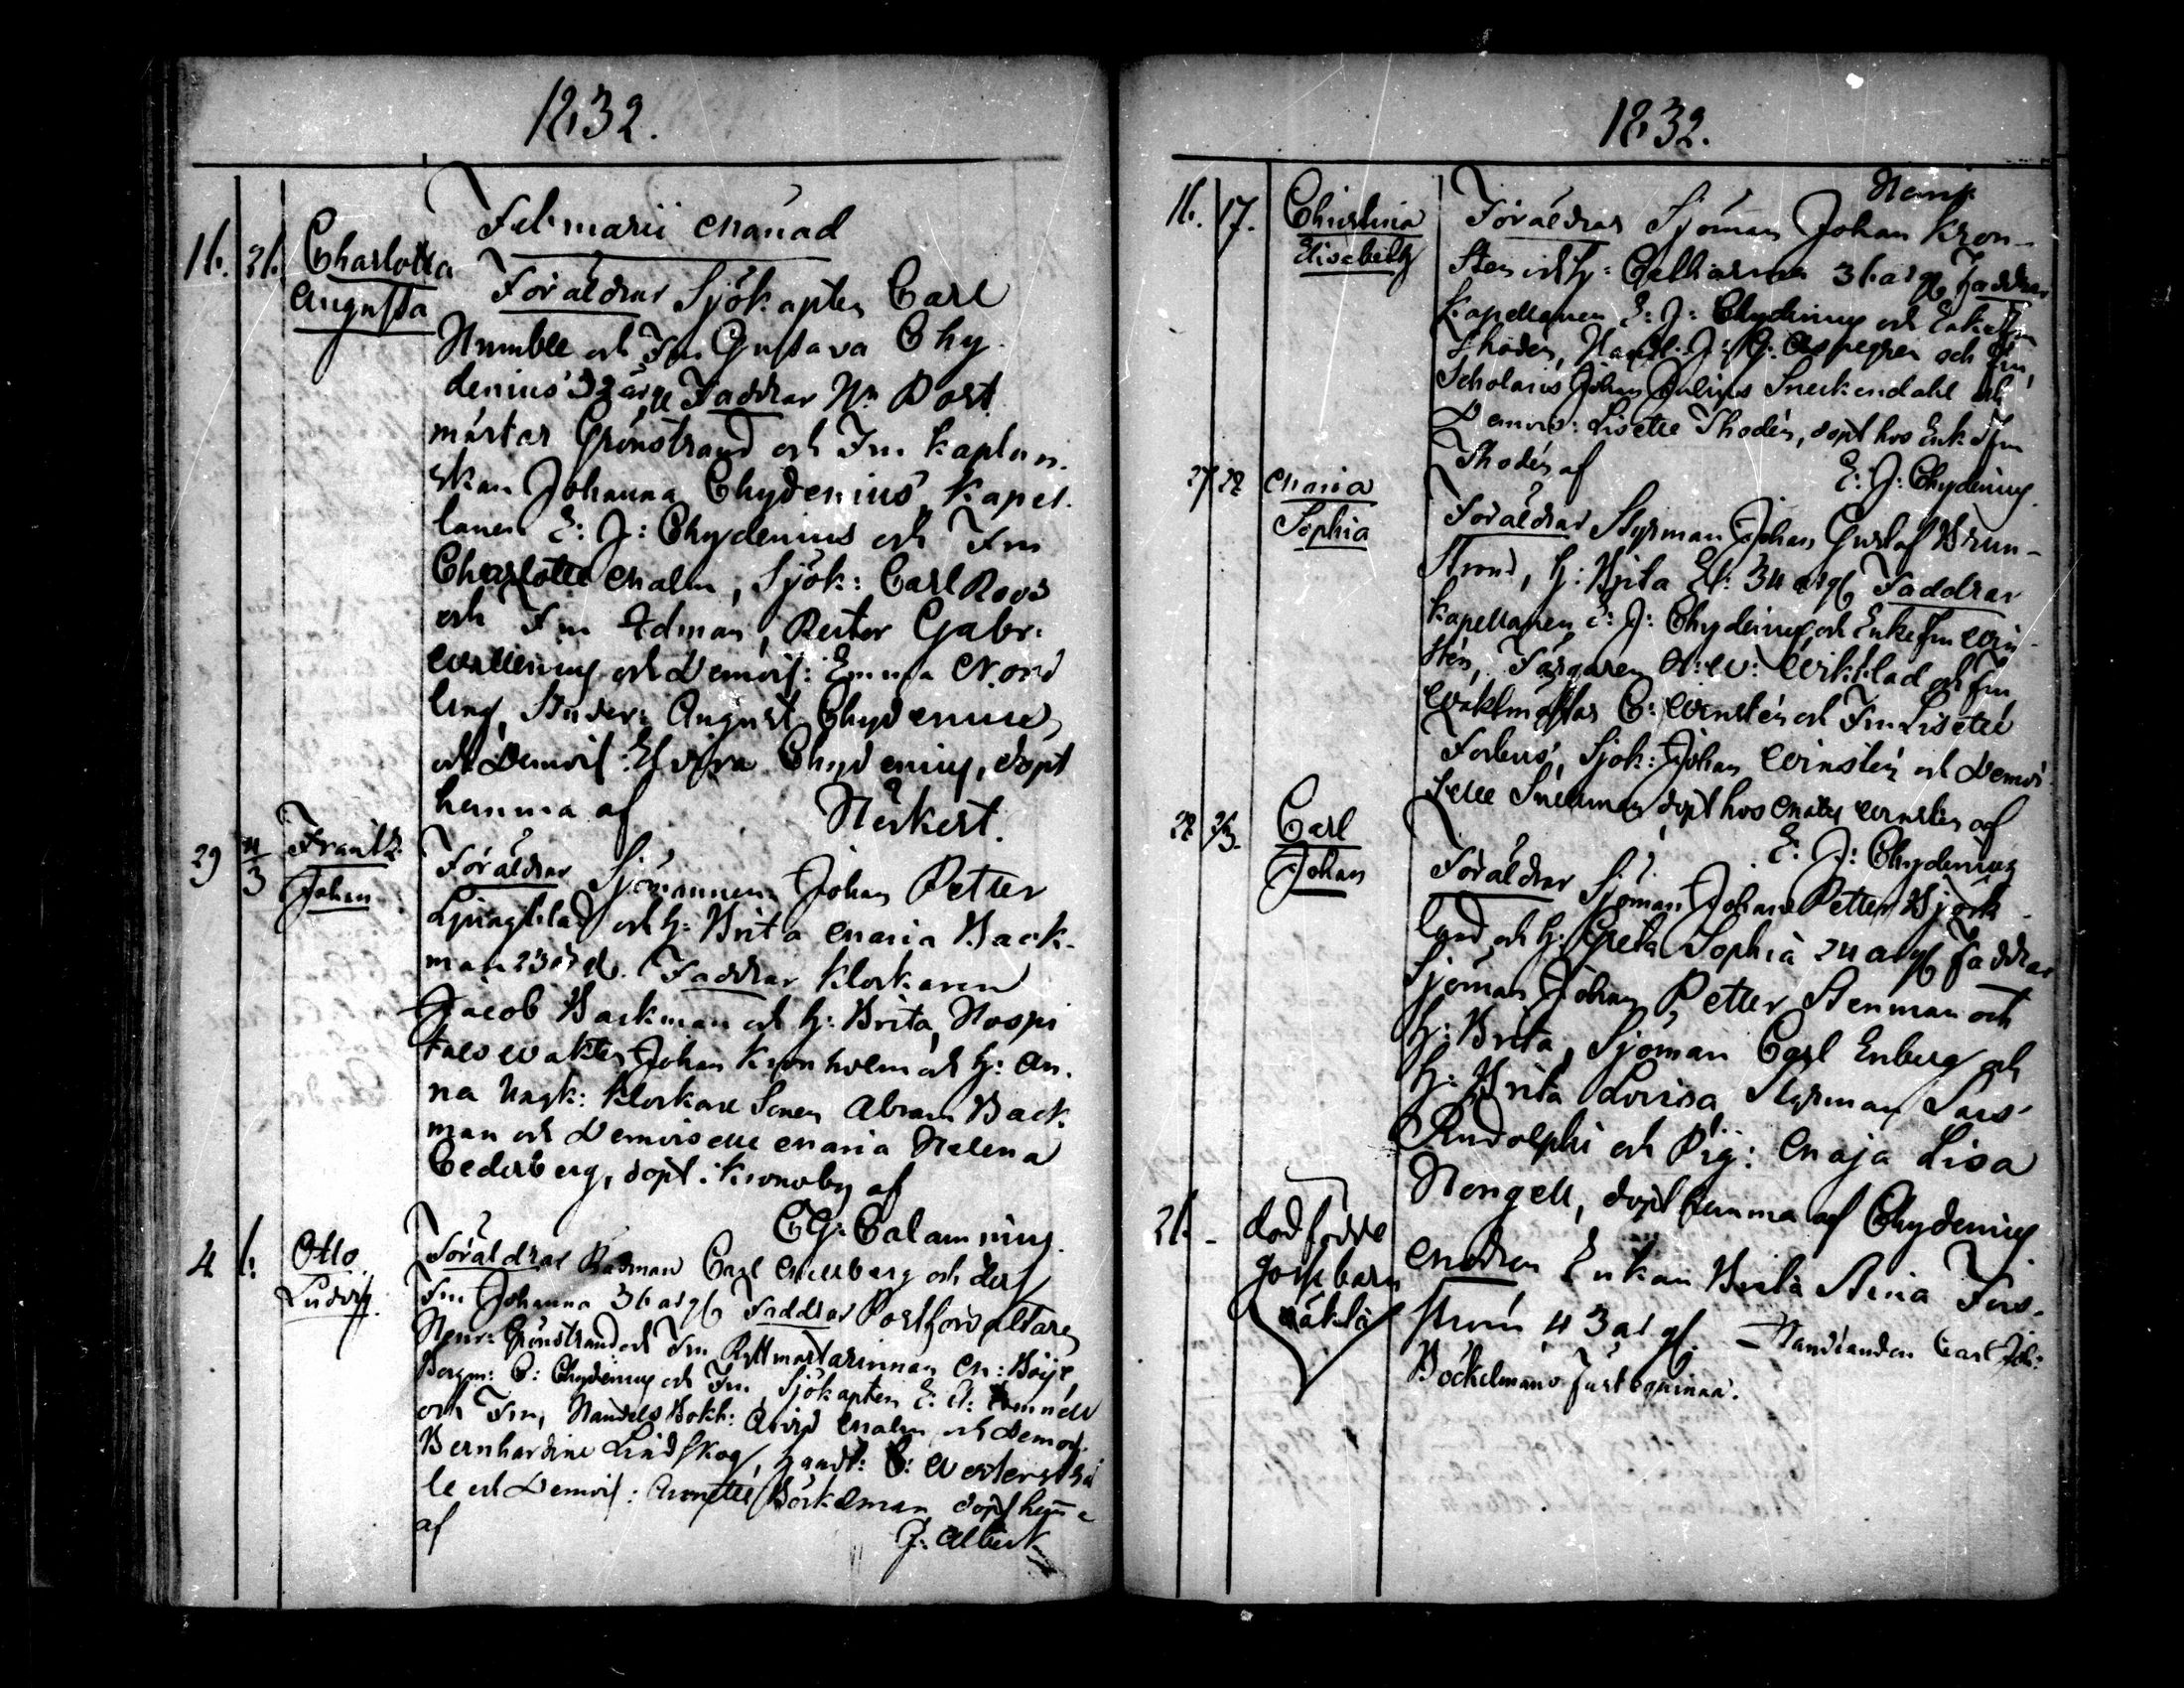 1832.
Februarii Månad
16. 26. Charlotta Augusta
Föräldrar Sjökapten Carl
Humble och Fru Gustava Chy-
denius 32 årg. Faddrar Hr Post
mästar Grönstrand och Fru Kaplan-
skan Johanna Chydenius, Kapel-
lanen E: J: Chydenius och Fru
Charlotte Malm, Sjök: Carl Roos
och Fru Edman, Rector Gabr:
och Demois: Emma Nord
ling, Studer: August Chydenius
och Demois: Elvira Chydenius, döpt
hemma af Herkert.
29 4/3 Frantz Johan
Föräldrar Sjömannen Johan Petter
Ljungblad och H: Brita Maria Back-
man 23 årg. Faddrar Klockaren
Jacob Backman och H: Brita, Hospi
tals wakten Johan Kronholm och H: An-
na Ungk: Klockare Sonen Abram Back-
man och Demoiselle Maria Helena
Cederberg, döpt i Kronoby af
C.G. Calamnius.
4 6: Otto Ludvig
Föräldrar Rådman Carl och dess
Fru Johanna 36 årg. Faddrar Postförvaltaren
Henr: Grönstrand och Fru Ryttmästarinnan M: Böije,
Borgm: C: Chydenius och Fru, Sjökapten E: A:
och Fru, Handels Bokh: Arvid Malm och Demois:
Bernhardine Lindskog, Handl: Westerstrå
le och Demois: Annette Böckelman, döpt hemma
af J: Albert
1832.
16. 17. Christina Elisabeth
Föräldrar Sjöman Johan Kron-
Sten och H: Catharina 36 årg. Faddrar
Kapellanen E: J: Chydenius och Enkefru
Thodén, Handl: J: G: Aspegren och Fru,
Scholaris Johan Julius Sneckendahl och
Demois: Lisette Thodén, döpt hos Enk Fru
Thodén af E: J: Chydenius.
27 28 Maria Sophia
Föräldrar Styrman Johan Gustaf Brun-
Strand, H: Brita El: 34 årg. Faddrar
Kapellanen E: J: Chydenius och Enkefru Win-
stén, Färgaren A: W: Wikblad och Fru
Waktmästar C: Winstén och Fru Lisette
Forbus, Sjök: Johan Winstén och Demoi-
selle Snellman döpt hos Winstén af
E: J: Chydenius
28 2/3. Carl Johan
Föräldrar Sjöman Johan Petter Björk-
lund och H: Greta Sophia 24 årg. Faddrar
Sjöman Johan Petter Stenman och
H: Brita, Sjöman Carl Enberg och
H: Brita Lovisa, Styrman Lars
Rudolphi och Pig: Maja Lisa
Hongell, döpt hemma af Chydenius
26. - dödfödde gossebarn oäkta
Modren Enkan Brita Stina Fors-
ström 43 årg. – Handlanden Carl Joh:
Böckelmans